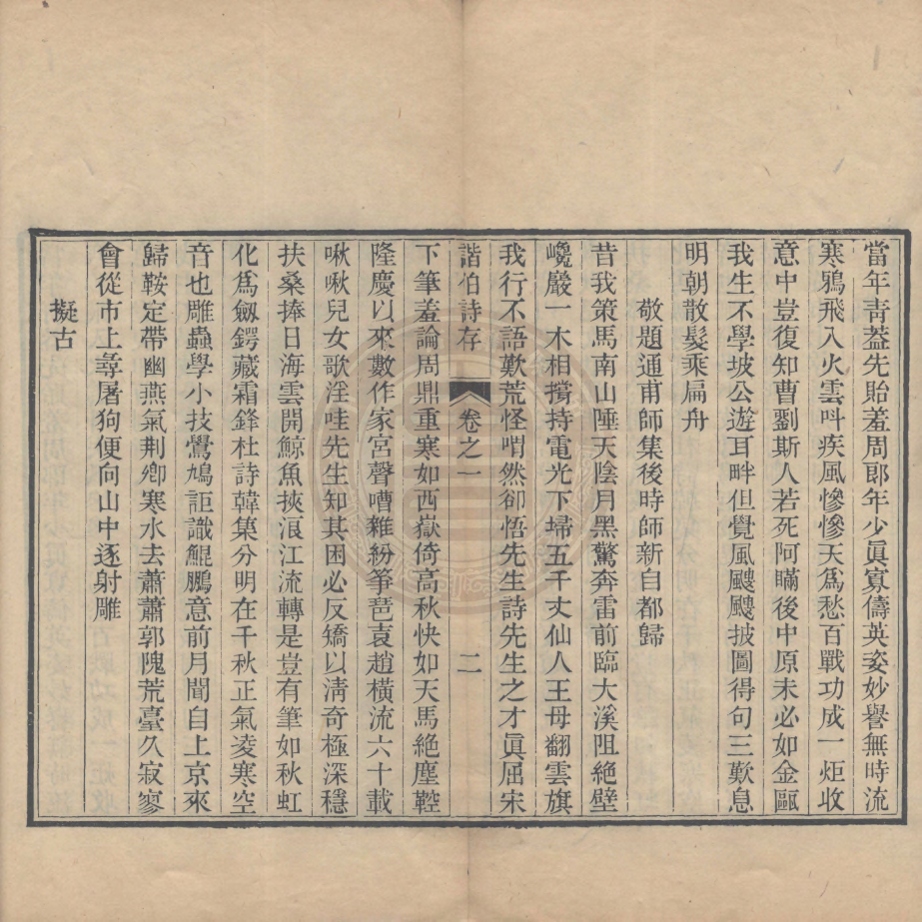 當年靑蓋先貽羞周郞年少眞寡儔英姿妙譽無時流
寒鴉飛入火雲呌疾風慘慘天爲愁百戰功成一炬收
意中豈復知曹劉斯人若死阿瞞後中原未必如金甌
我生不學坡公遊耳畔但覺風颼颼披圖得句三歎息
明朝散髮乘扁舟
敬題通甫師集後時師新自都歸
昔我策馬南山陲天陰月黑驚奔雷前臨大溪阻絶壁
巉巖一木相撐持電光下埽五千丈仙人王母翻雲旗
我行不語歎荒怪喟然卻悟先生詩先生之才眞屈宋
諧伯詩存 卷之一 二
下筆羞論周鼎重寒如西嶽倚高秋快如天馬絶塵鞚
隆慶以來數作家宮聲嘈雜紛箏琶袁趙橫流六十載
啾啾兒女歌淫哇先生知其困必反矯以淸奇極深穩
扶桑捧日海雲開鯨魚挾浪江流轉是豈有筆如秋虹
化爲劒鍔藏霜鋒杜詩韓集分明在千秋正氣凌寒空
音也雕蟲學小技鷽鳩詎識鯤鵬意前月聞自上京來
歸鞍定帶幽燕氣荆卿寒水去蕭蕭郭隗荒臺久寂寥
會從市上尋屠狗便向山中逐射雕
擬古